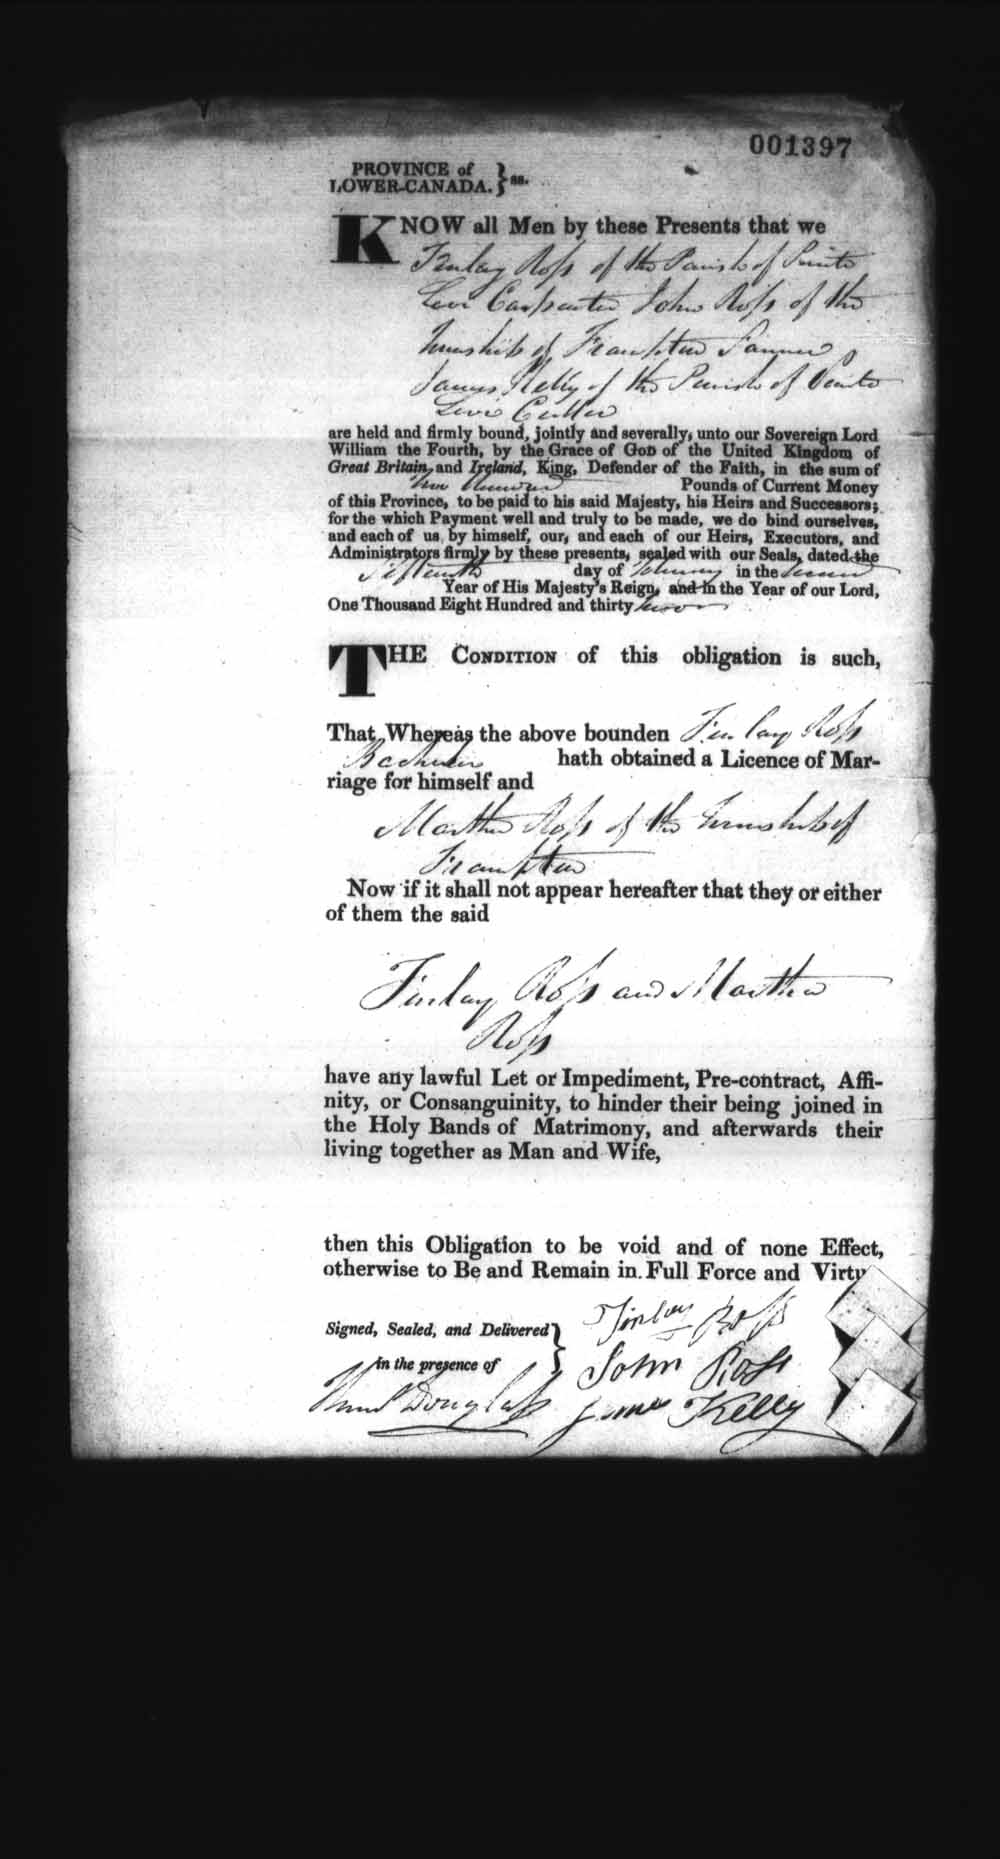 001397
PROVINCE of
LOWER-CANADA. } ss.
KNOW all Men by these Presents that we
Finlay Ross of the Parish of Pointe
Levi Carpenter John Ross of the
Township of Frampton Farmer
James Kelly of the Parish of Pointe
Levi Culler
are held and firmly bound, jointly and severally, unto our Sovereign Lord
William the Fourth, by the Grace of GOD of the United Kingdom of
Great Britain and Ireland, King, Defender of the Faith, in the sum of
Two Hundred Pounds of Current Money
of this Province, to be paid to his said Majesty, his Heirs and Successors;
for the which Payment well and truly to be made, we do bind ourselves,
and each of us by himself, our, and each of our Heirs, Executors, and
Administrators firmly by these presents, sealed with our Seals, dated the
Fifteenth day of in the Second
Year of His Majesty's Reign, and in the Year of our Lord,
One Thousand Eight Hundred and thirty two
THE CONDITION of this obligation is such,
That Whereas the above bounden Finlay Ross
Bachelor hath obtained a Licence of Mar-
riage for himself and
Martha Ross of the Township of
Frampton
Now if it shall not appear hereafter that they or either
of them the said
Finlay Ross and Martha
Ross
have any lawful Let or Impediment, Pre-contract, Affi-
nity, or Consanguinity, to hinder their being joined in
the Holy Bands of Matrimony, and afterwards their
living together as Man and Wife,
then this Obligation to be void and of none Effect,
otherwise to Be and Remain in Full Force and Virtu
Signed, Sealed, and Delivered }
in the presence of
Finlay Ross
John Ross
Douglass James Kelly